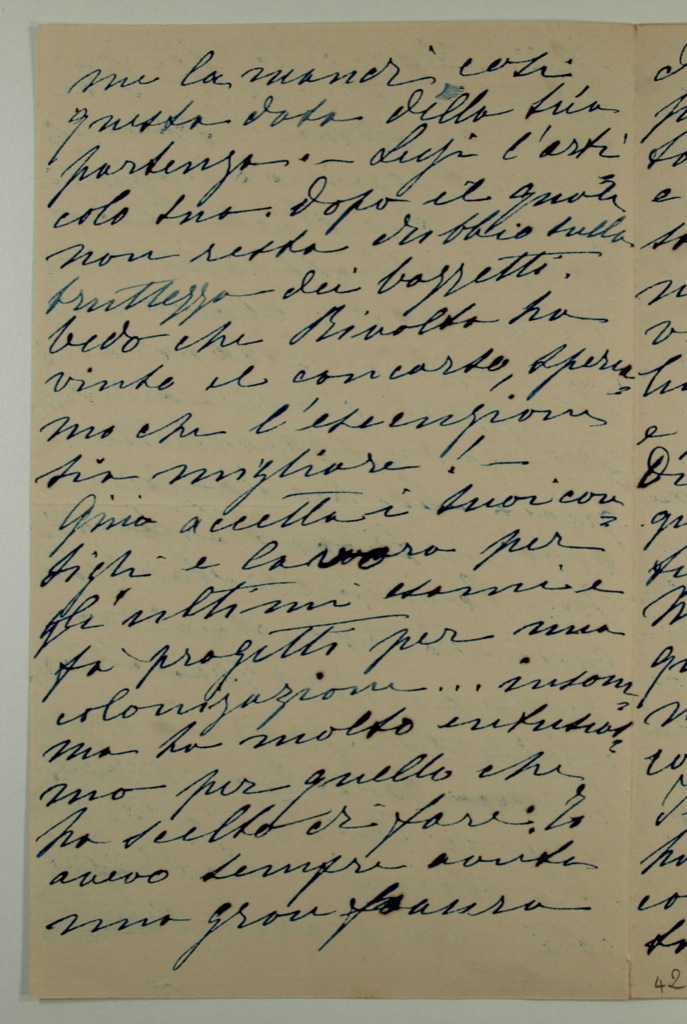 me la mandi così
questa data della tua
partenza. – Lessi l'arti
colo tuo. Dopo il quale
non resta dubbio sulla
bruttezza dei bozzetti.
Vedo che Rivalta ha
vinto il concorso, speria=
mo che l'esecuzione
sia migliore! –
Gino accetta i tuoi con=
sigli e lavora per
gli ultimi esami e
fa progetti per una
colonizazione... insom=
ma ha molto entusias=
mo per quello che
ha scelto di fare: Io
avevo sempre avuta
una gran paura
42